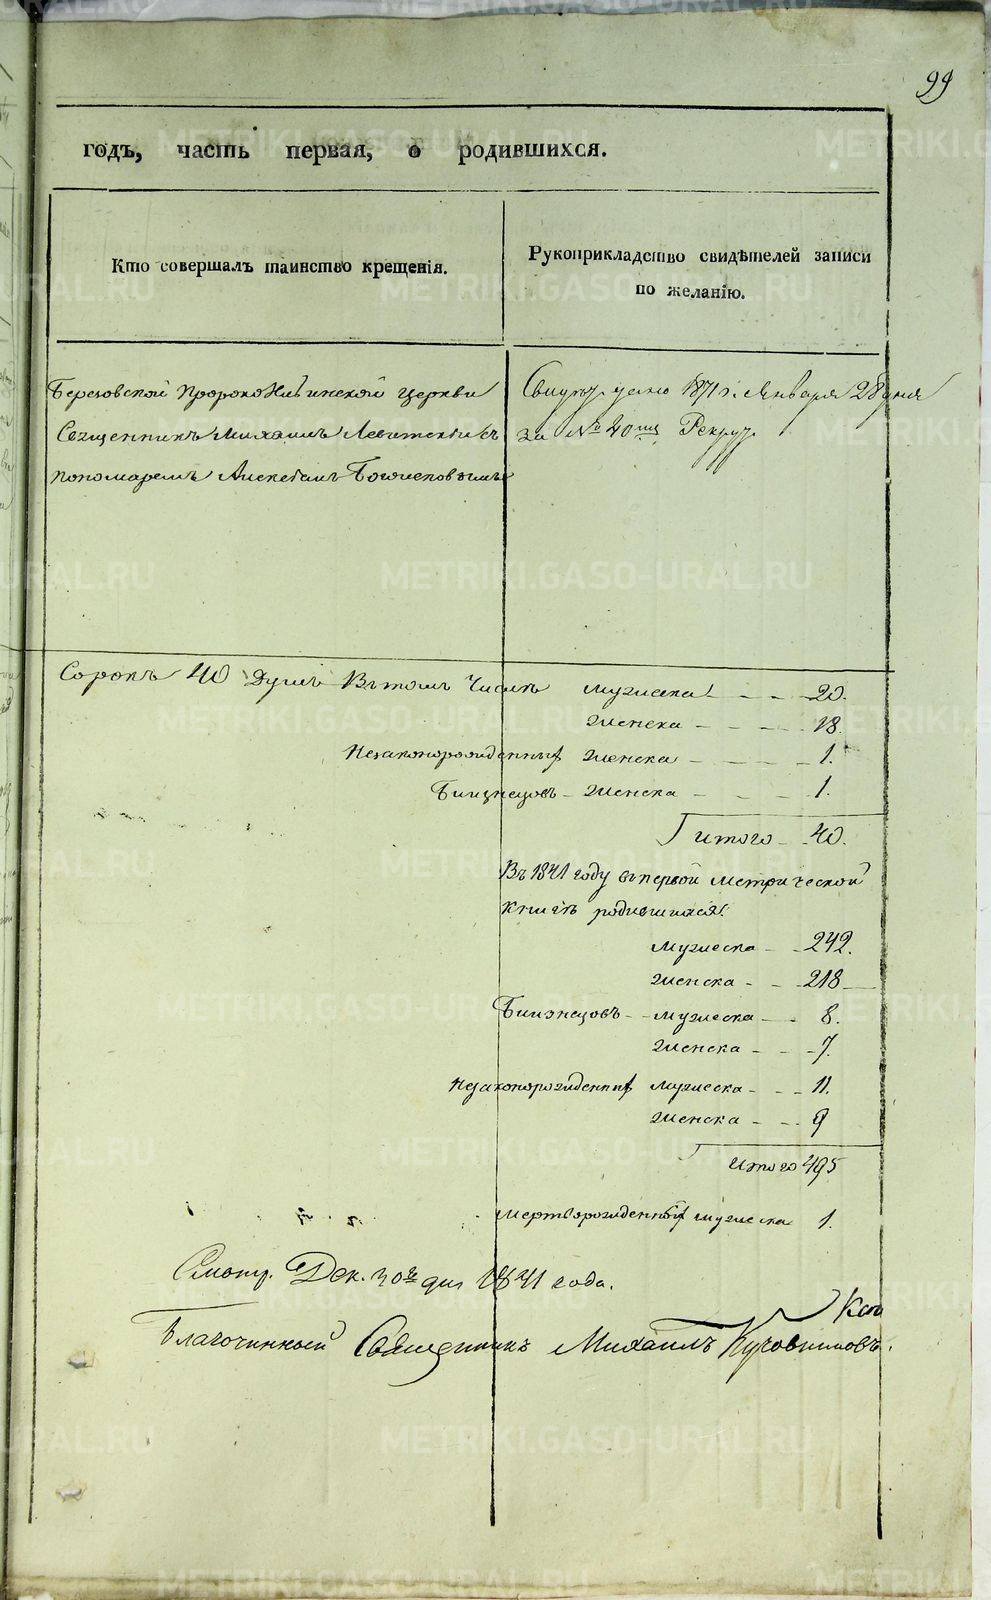 99
годъ, часть первая, о родившихся.
Кто совершалъ таинство крещенія.
Рукоприкладство свидѣтелей записи
по желанію.
Березовской Пророко Ильинской церкви
Священникъ Михаилъ Левитскій съ
пономаремъ
1871 г. Января 28 дня
за № 40
Сорокъ 40 Душъ Въ томъ Числѣ мужеска 20.
женска 18.
Незаконорожденныхъ женска 1.
Близнецовъ женска 1.
Итого 40.
Въ 1841 году въ первой Метрической
Книгѣ родившихся:
мужеска 242.
женска 218
Близнецовъ мужеска 8.
женска 7.
Незаконорожденныхъ мужеска 11.
женска 9
Итого 495
Мертворожденныхъ мужеска 1.
Дек. 30го дня 1841 года.
Благочинный Священникъ Михаилъ
METRIKI.GASO-URAL.RU